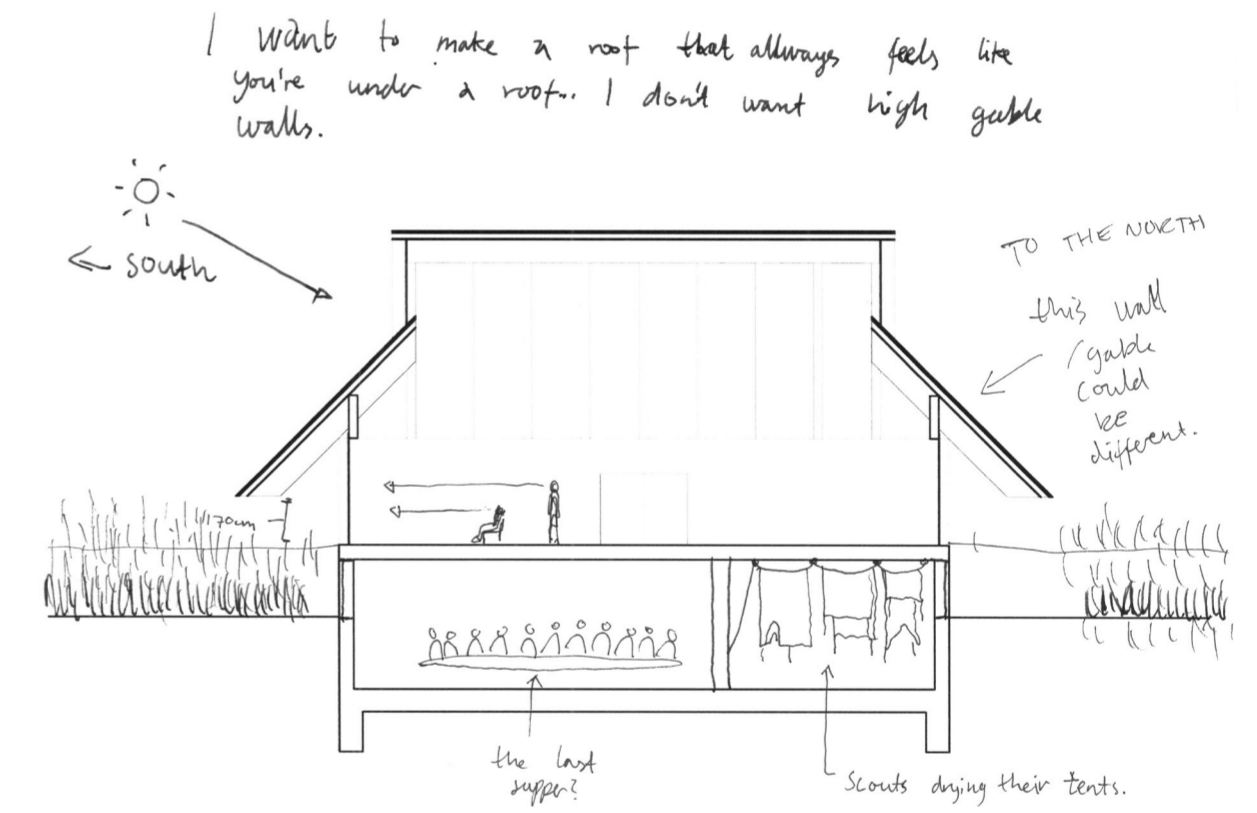 I want to make a roof that allways feels like
you're under a roof... I don't want high gable
walls.
← south
TO THE NORTH
this wall
/gable
could
be
different.
170cm
the last
supper?
Scouts drying their tents.